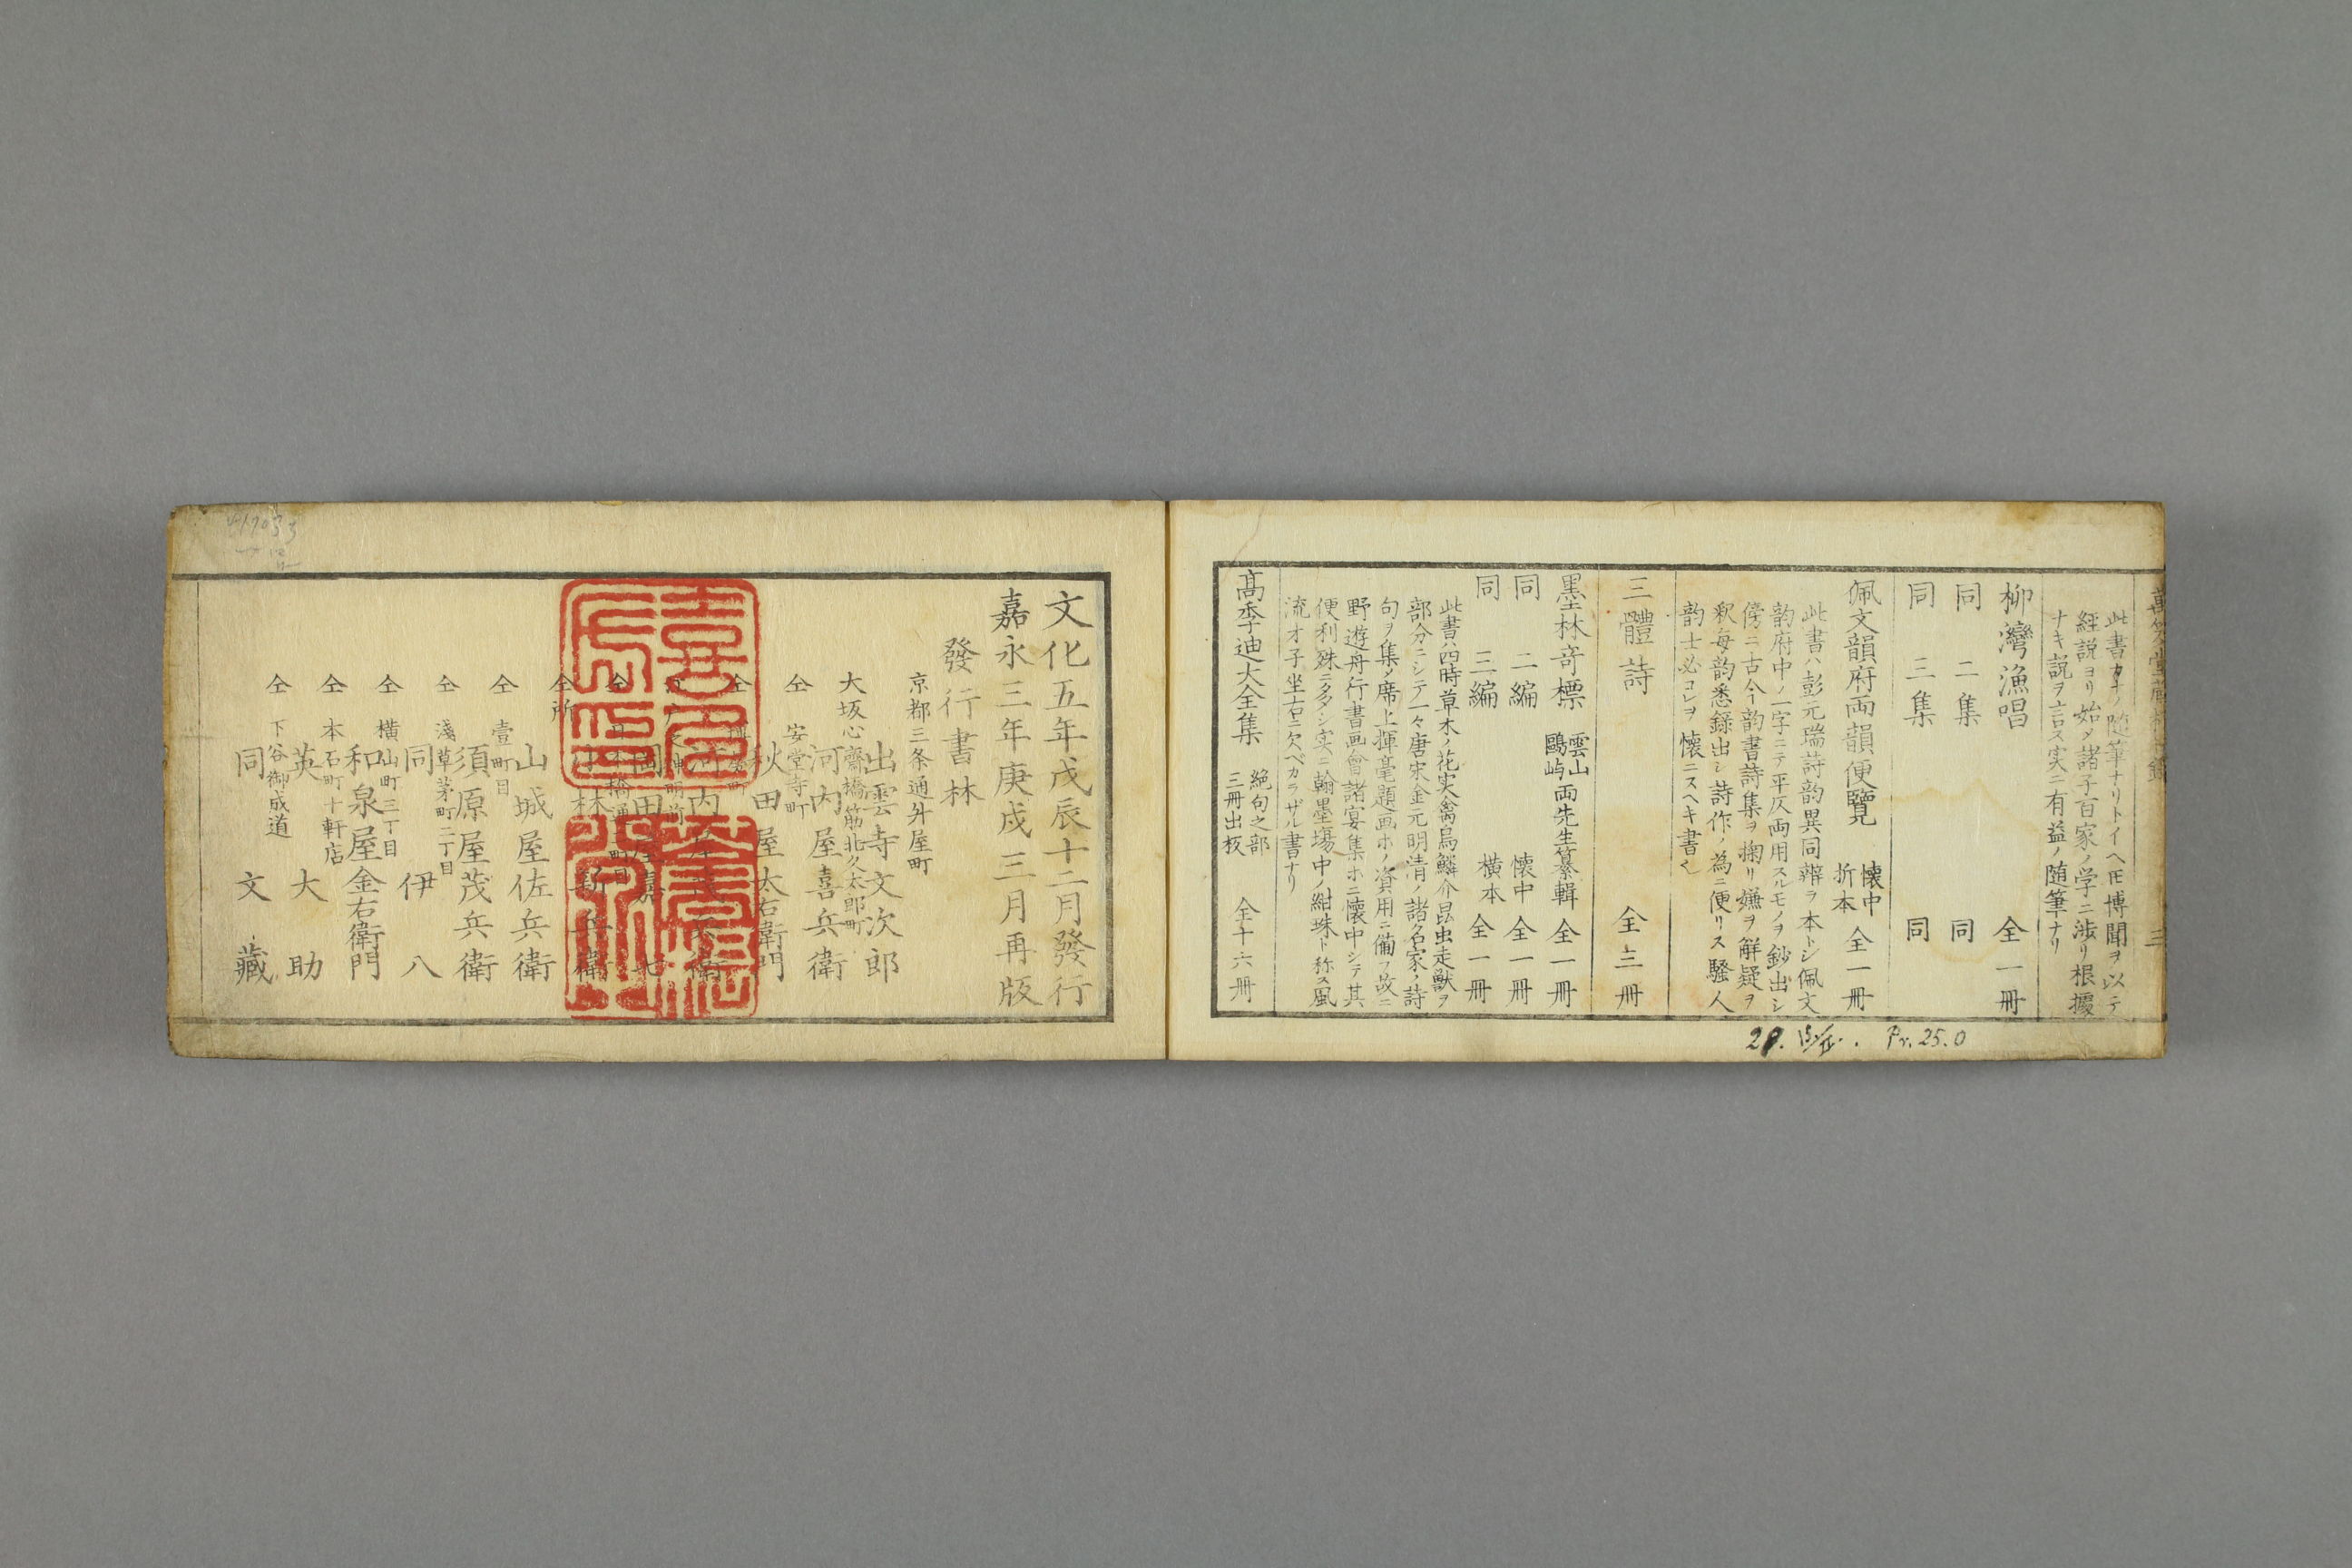 此書カナノ随筆ナリトイヘ𪜈博聞ヲ以テ
経説ヨリ始メ諸子百家ノ学ニ渉リ根據
ナキ説ヲ言ス実ニ有益ノ随筆ナリ
柳灣漁唱 全一冊
同 二集 同
同 三集 同
佩文韻府両韻便覧 懐中折本 全一冊
此書ハ彭元瑞詩韵異同辯ヲ本トシ佩文
韵府中ノ一字ニテ平仄両用スルモノヲ鈔出シ
傍ニ古今ノ韵書詩集ヲ掬リ嫌ヲ解疑ヲ
釈毎韵悉録出シ詩作ノ為ニ便リス騒人
韵士必コレヲ懐ニスヘキ書也
三體詩 全三冊
墨林奇標 雲山鷗屿両先生纂輯 全一冊
同 二編 懐中 全一冊
同 三編 横本 全一冊
此書ハ四時草木ノ花実禽鳥鱗介昆虫走獣ヲ
部分ニシテ一々唐宋金元明清ノ諸名家ノ詩
句ヲ集メ席上揮毫題画ホノ資用ニ備フ故ニ
野遊舟行書画會諸宴集ホニ懐中シテ其
便利殊ニ多シ実ニ翰墨場中ノ紺珠ト称ス風
流才子坐右ニ欠ベカラザル書ナリ
高季迪大全集 絶句之部三冊出板 全十六冊
29. Pr. 25.0
文化五年戊辰十二月發行
嘉永三年庚戌三月再版
發行書林
京都三条通舛屋町
出雲寺文次郎
大坂心齋橋筋北久太郎町
河内屋喜兵衛
仝 安堂寺町
秋田屋太右衛門
仝
河内屋茂兵衛
神明前
岡田屋嘉七
仝 日本橋通
仝所
林新兵衛
仝 壹町目
山城屋佐兵衛
仝 淺草茅町二丁目
須原屋茂兵衛
同 伊八
仝 横山町三丁目
和泉屋金右衛門
仝 本石町十軒店
英 大助
仝 下谷御成道
同 文藏